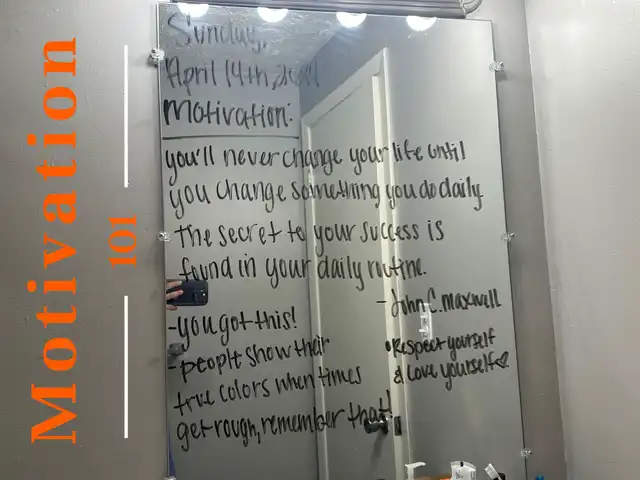 Motivation
101
Sunday,
April 14th, 2024
Motivation:
you'll never change your life until
you change something you do daily
the secret to your success is
found in your daily routine.
- John C. Maxwell
- you got this!
- people show their
true colors when times
get rough, remember that!
• Respect yourself
& Love yourself♡